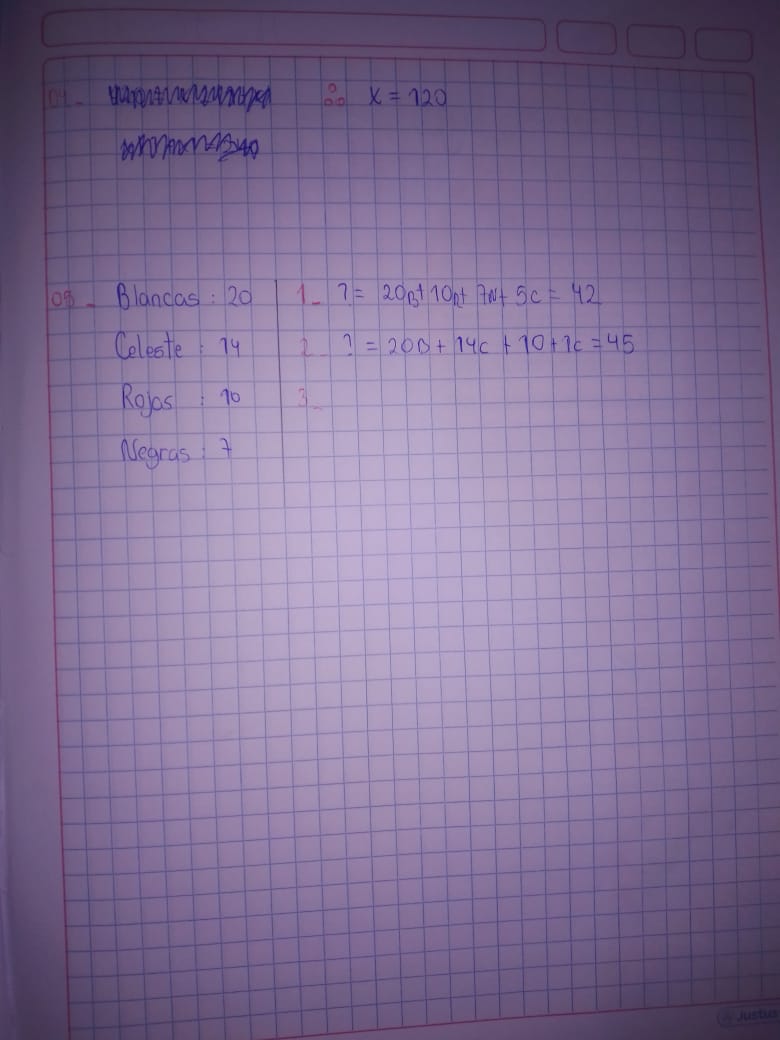 04- ∴ x = 120
08- Blancas : 20
Celeste : 14
Rojas : 10
Negras : 7
1- ? = 20B + 10R + 7N + 5C = 42
2- ? = 20B + 14C + 10 + 1C = 45
3-
Justus